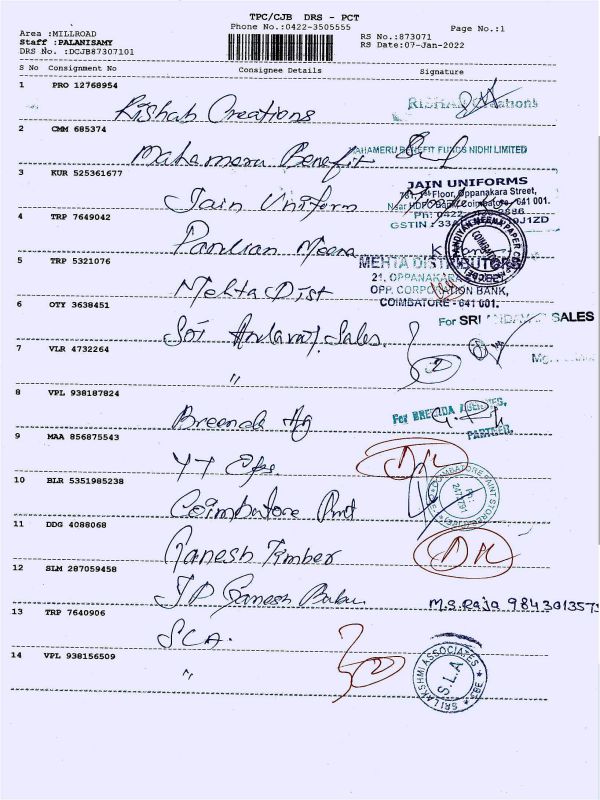 TPC/CJB DRS - PCT
Phone No.:0422-3505555
Page No.:1
Area :MILLROAD
Staff :PALANISAMY
DRS No. :DCJB87307101
RS No.:873071
RS Date:07-Jan-2022
S No Consignment No Consignee Details Signature
1 PRO 12768954
Rishab Creations
2 CMM 685374
Mahameru Benefit
MAHAMERU BENEFIT FUNDS NIDHI LIMITED
3 KUR 525361677
Jain Uniform
JAIN UNIFORMS
Floor, Oppanakara Street,
Coimbatore- 641 001.
4 TRP 7649042
Pandian Meena
5 TRP 5321076
Mehta Dist
MEHTA DISTRIBUTORS
21, OPPANAKARA
OPP. CORPORATION BANK,
COIMBATORE - 641 001.
6 OTY 3638451
Sales
For SRI SALES
7 VLR 4732264
"
8 VPL 938187824
Breenda Ag
For BRENDA AGENCIES,
PARTNER.
9 MAA 856875543
YT
10 BLR 5351985238
Coimbatore Pnt
COIMBATORE PAINT STORES
11 DDG 4088068
Ganesh Timber
12 SLM 287059458
JP Ganesh Babu
M.S.Raja 984301357
13 TRP 7640906
SLA.
14 VPL 938156509
"
SRI LAKSHMI ASSOCIATES
S.L.A
CBE